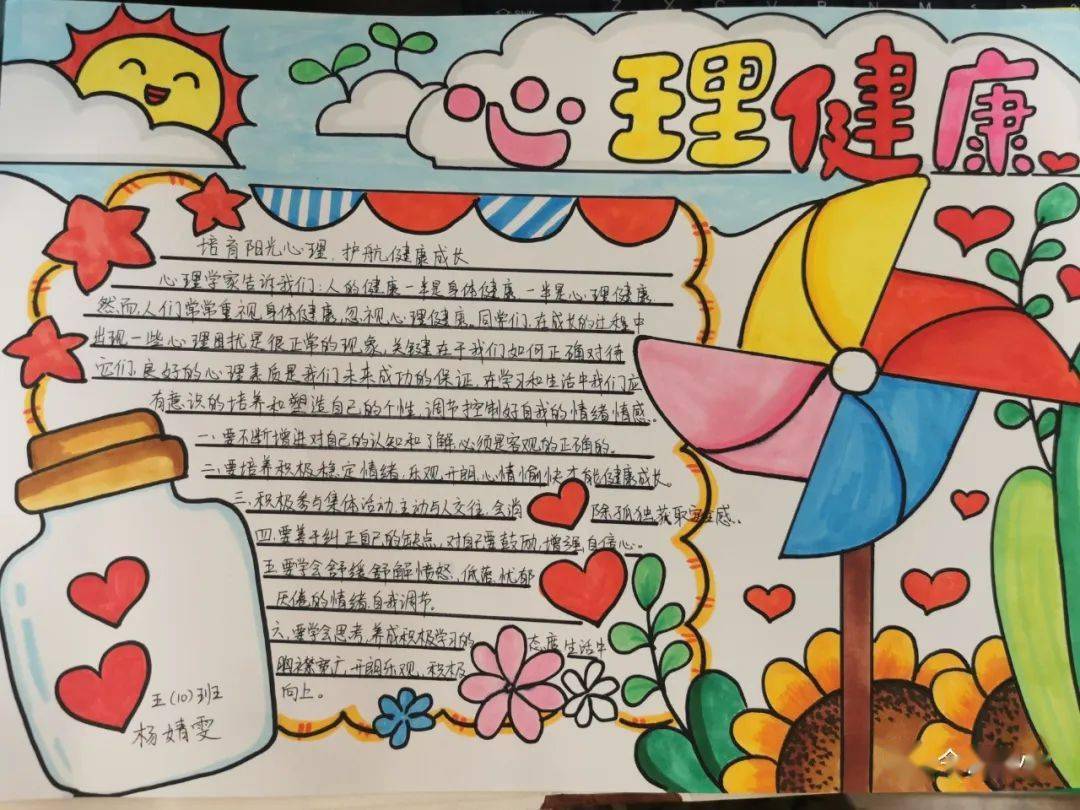 心理健康
培育阳光心理，护航健康成长
心理学家告诉我们：人的健康一半是身体健康，一半是心理健康，
然而，人们常常重视身体健康，忽视心理健康。同学们，在成长的过程中
出现一些心理困扰是很正常的现象，关键在于我们如何正确对待
它们，良好的心理素质是我们未来成功的保证，在学习和生活中我们应
有意识的培养和塑造自己的个性，调节控制好自我的情绪情感。
一、要不断增进对自己的认知和了解必须是客观的正确的。
二、要培养积极稳定情绪，乐观开朗，心情愉快才能健康成长。
三、积极参与集体活动，主动与人交往，会消除孤独获取安全感。
四、要善于纠正自己的缺点，对自己要鼓励，增强自信心。
五、要学会舒缓舒解愤怒，低落，忧郁
厌倦的情绪，自我调节。
六、要学会思考，养成积极学习的态度生活中
胸襟宽广，开朗乐观，积极
向上。
五（10）班
杨婧雯